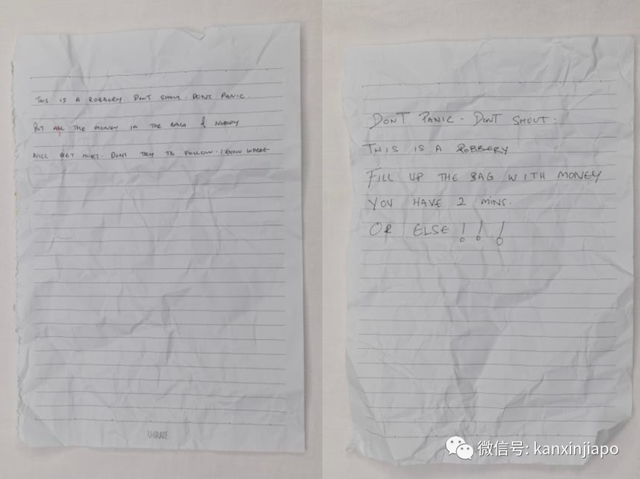 THIS IS A ROBBERY. DON'T SHOUT. DON'T PANIC.
PUT ALL THE MONEY IN THE BAG & NOBODY
WILL GET HURT. DON'T TRY TO FOLLOW. I KNOW WHERE
DON'T PANIC. DON'T SHOUT.
THIS IS A ROBBERY
FILL UP THE BAG WITH MONEY
YOU HAVE 2 MINS.
OR ELSE!!!
微信号: kanxinjiapo